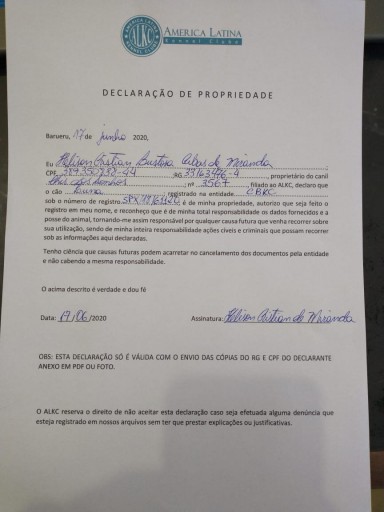 AMERICA LATINA
ALKC
AMERICA LATINA
Kennel Clube
DECLARAÇÃO DE PROPRIEDADE
Barueru, 17 de junho 2020,
Eu Cristian Bustos de Miranda
CPF RG 33163476-4, proprietário do canil
nº 3567, filiado ao ALKC, declaro que
o cão Luna, registrado na entidade CBKC
sob o número de registro é de minha propriedade, autorizo que seja feito o
registro em meu nome, e reconheço que é de minha total responsabilidade os dados fornecidos e a
posse do animal, tornando-me assim responsável por qualquer causa futura que venha recorrer sobre
sua utilização, sendo de minha inteira responsabilidade ações cíveis e criminais que possam recorrer
sob as informações aqui declaradas.
Tenho ciência que causas futuras podem acarretar no cancelamento dos documentos pela entidade
e não cabendo a mesma responsabilidade.
O acima descrito é verdade e dou fé
Data: 17/06/2020 Assinatura: de Miranda
OBS: ESTA DECLARAÇÃO SÓ É VÁLIDA COM O ENVIO DAS CÓPIAS DO RG E CPF DO DECLARANTE
ANEXO EM PDF OU FOTO.
O ALKC reserva o direito de não aceitar esta declaração caso seja efetuada alguma denúncia que
esteja registrado em nossos arquivos sem ter que prestar explicações ou justificativas.